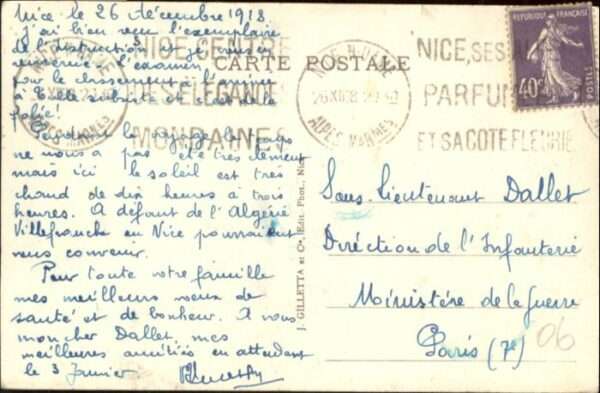 Nice le 26 décembre 1918
j'ai bien reçu l'exemplaire
de l'instruction et je vous en
remercie. l'examen
pour le classement à l'arrivée
à subsiste et c'est de la
Pendant le voyage le temps
ne nous a pas été très clément
mais ici le soleil est très
chaud de dix heures à trois
heures. A défaut de l'Algérie
Villefranche ou Nice pourraient
vous convenir.
Pour toute votre famille
mes meilleurs vœux de
santé et de bonheur. A vous
mon cher Dallet, mes
meilleures amitiés en attendant
le 3 Janvier
CARTE POSTALE
NICE, CENTRE
DES ÉLÉGANCES
MONDAINES
NICE
ALPES MARMES
NICE, SES
PARFUMS
ET SA COTE FLEURIE
RÉPUBLIQUE FRANÇAISE
40c
POSTES
J. GILLETTA et Cie, Édit. Phot., Nice
Sous-Lieutenant Dallet
Direction de l'Infanterie
Ministère de la Guerre
Paris (7e)
06